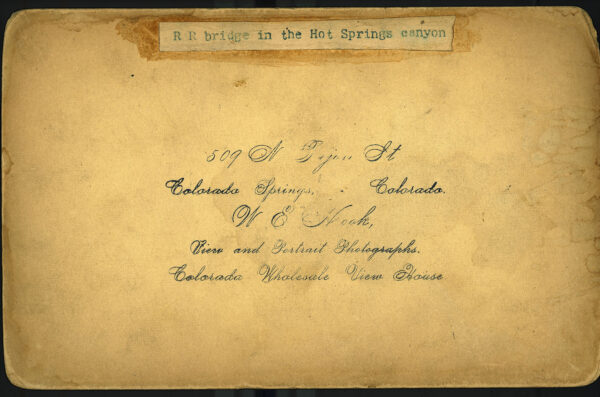 R R bridge in the Hot Springs canyon
509 N Tejon St
Colorado Springs, Colorado.
W E Hook,
View and Portrait Photographs.
Colorado Wholesale View House